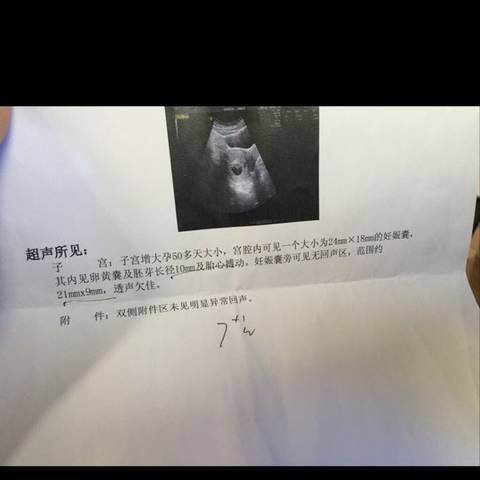 超声所见：
子 宫：子宫增大孕50多天大小，宫腔内可见一个大小为24mm×18mm的妊娠囊，
其内见卵黄囊及胚芽长径10mm及胎心搏动。妊娠囊旁可见无回声区，范围约
21mmx9mm，透声欠佳。
附 件：双侧附件区未见明显异常回声。
7⁺¹w